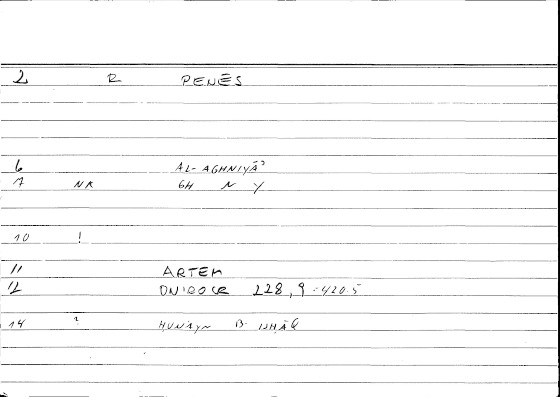 2 R PENĒS
6 AL-AGHNIYĀʾ
7 NR GH N Y
10 !
11 ARTEM
12 ONIROCR 228,9-420.5
14 ? HUNAYN B. ISHĀQ